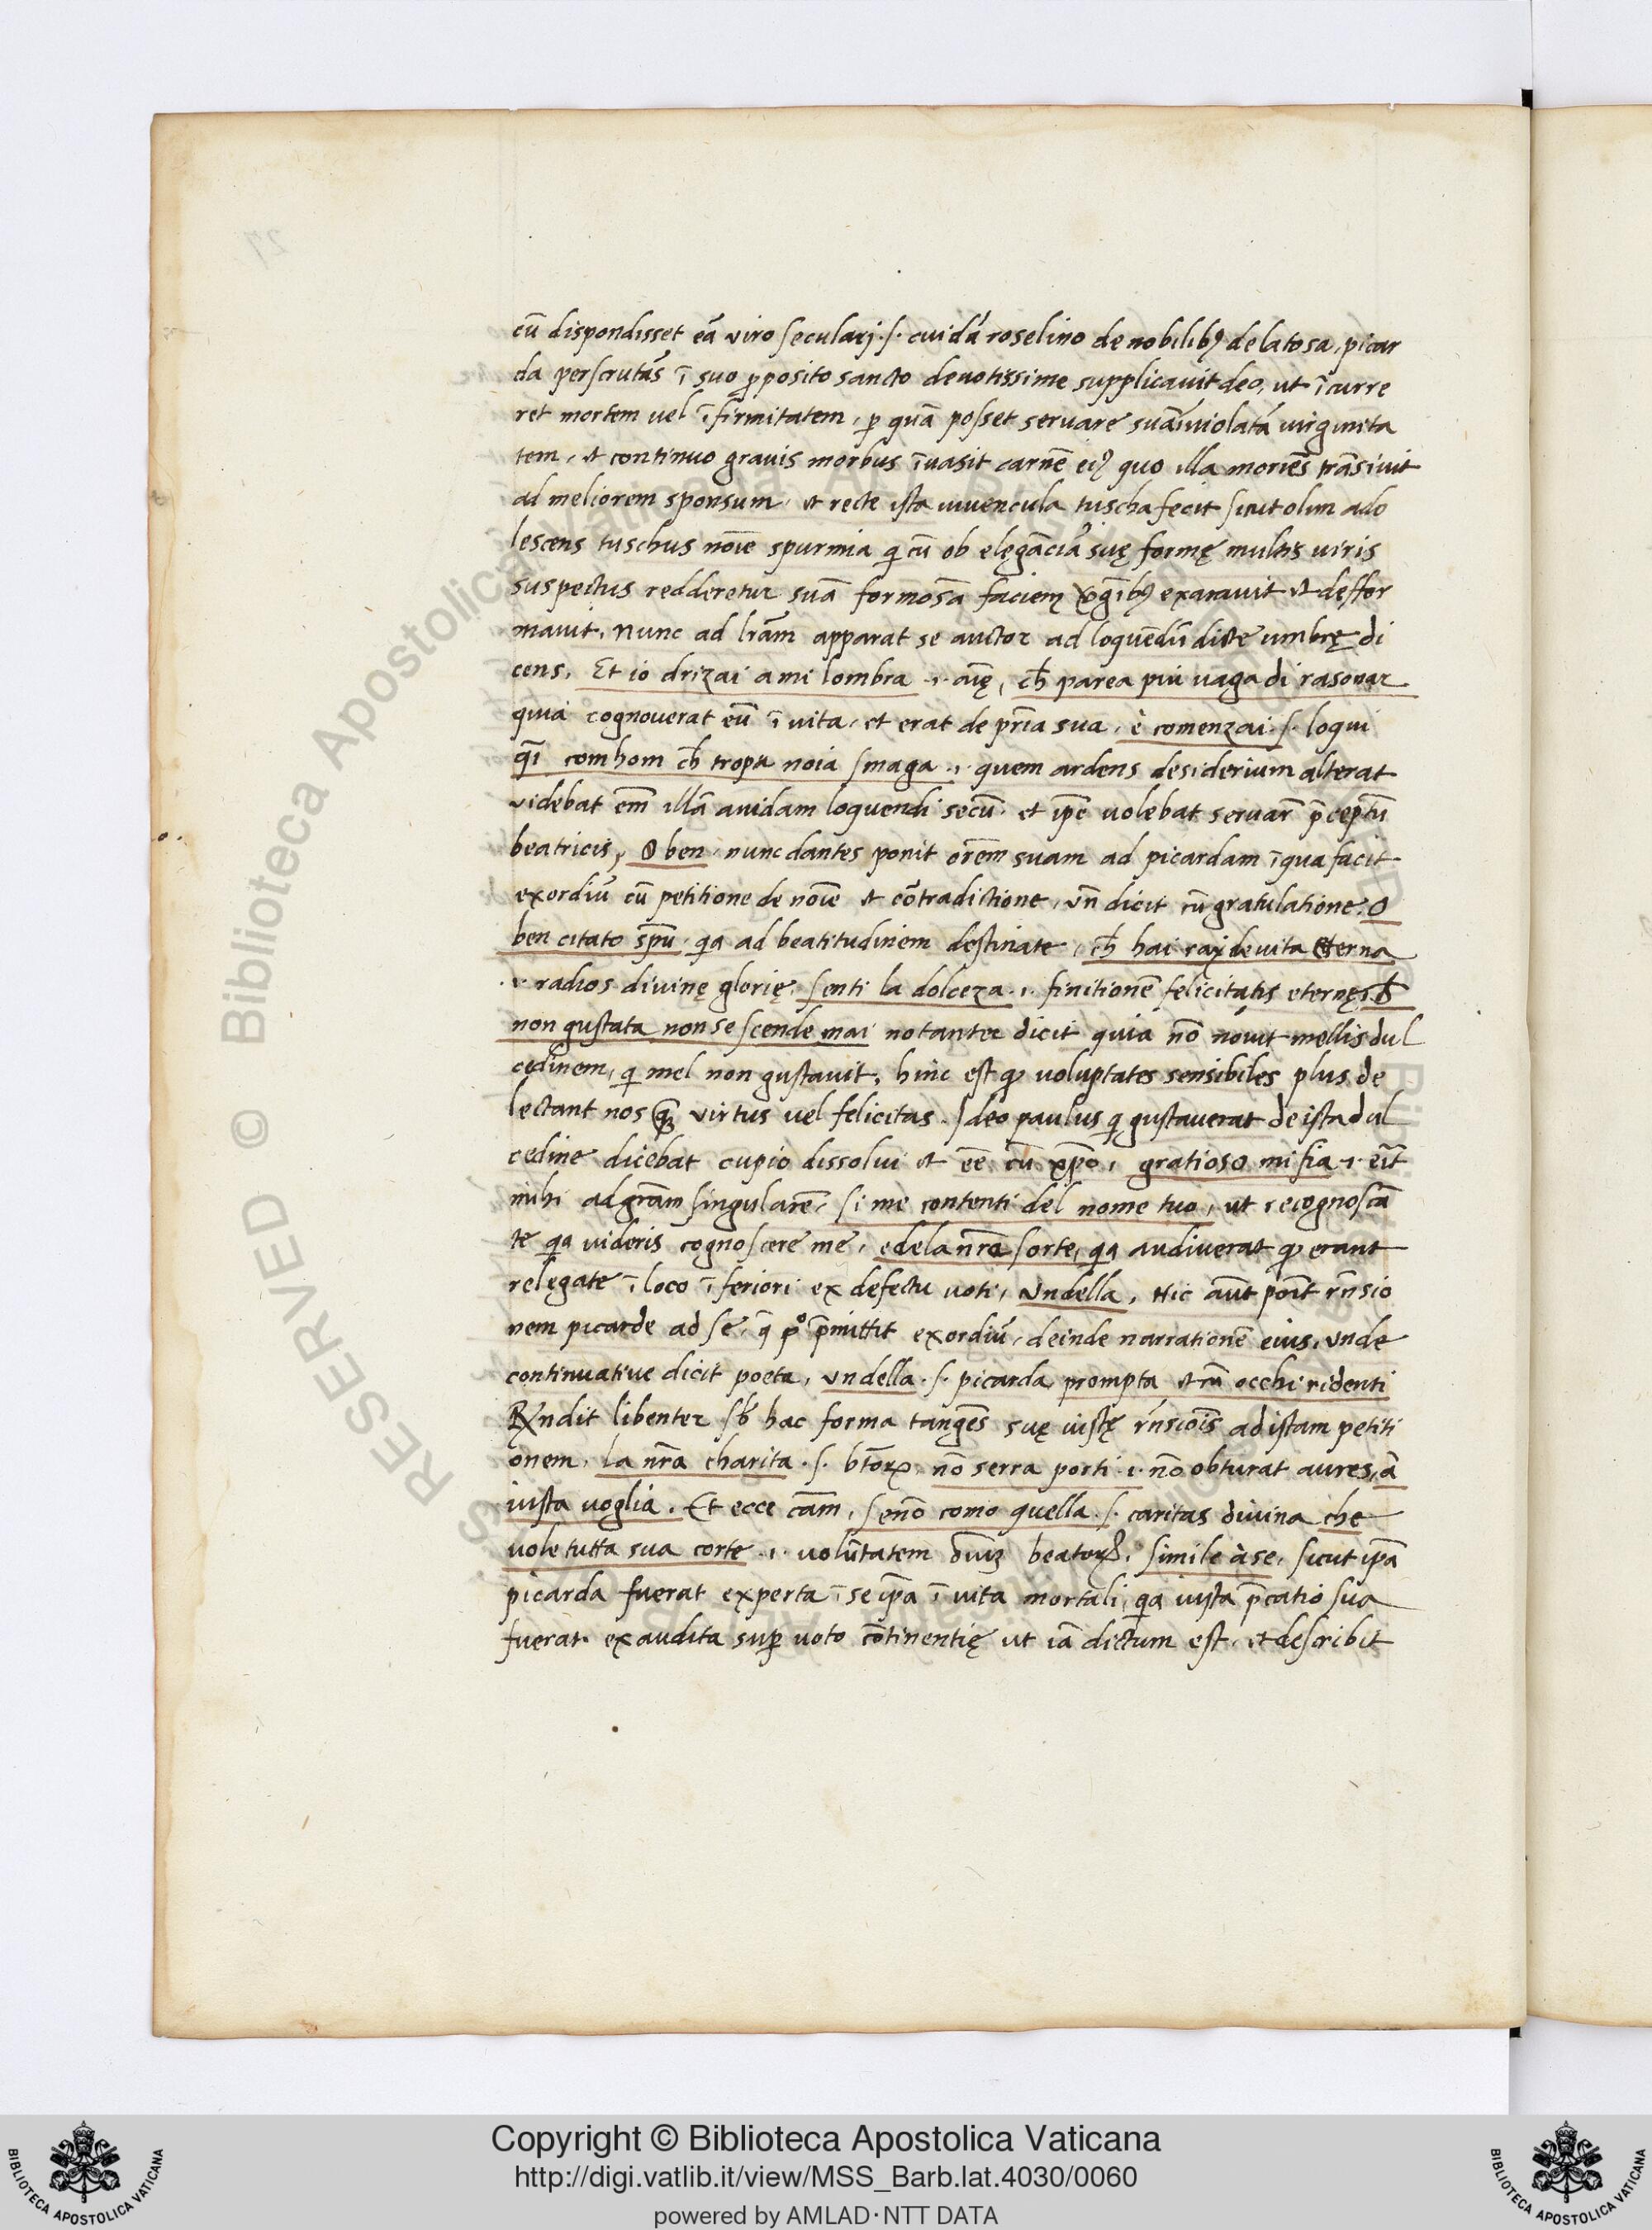 cū dispondisset eā viro secularj .s. cuidā roselino de nobilibꝫ de la tosa, picar
da perscrutās ī suo ꝓposito sancto deuotissime supplicauit deo, ut īcurre
ret mortem uel īfirmitatem, ꝑ quā posset seruare suā īuiolatā uirginita
tem, et continuo grauis morbus īuasit carnē eiꝰ quo illa moriēs trāsiuit
ad meliorem sponsum, et recte ista iuuencula tuscha fecit sicut olim ado
lescens tuschus noīe spurmia qi cū ob elegācią̄ suę formę multis uiris
suspectus redderetur suā formosā faciem exarauit et deffor
mauit. Nunc ad lrām apparat se auctor ad loquēdū dicte umbrę di
cens. Et io drizai a mi lombra .i. aīę, ch̄ parea piu uaga di rasonar
quia cognouerat eū ī uita, et erat de pr̄ia sua, è comenzai .s. loqui
q̄i com hom ch̄ tropa noia smaga .i. quem ardens desiderium alterat
videbat em̄ illā auidam loquendi secū, et ip̄e uolebat seruar̄ p̄ceptū
beatricis, O ben, nunc dantes ponit orēm suam ad picardam ī qua facit
exordiū cū petitione de noīe et cōtradictione, vn̄ dicit cū gratulatione, O
ben citato sp̄u, qa ad beatitudinem destinate, ch̄ hai rai de uita eterna
.i. radios divinę glorię, senti la dolceza .i. finitionē felicitatis eternę, ch̄
non gustata non se scende mai notanter dicit quia nō nouit mellis dul
cedinem, qi mel non gustauit, hinc est qƥ uoluptates sensibiles plus de
lectant nos q̄ virtus uel felicitas. Ideo paulus qi gustauerat de ista dul
cedine dicebat cupio dissolui et eē cū xp̄o, gratioso mi fia .i. erit
mihi ad grām singularē, si me contenti del nome tuo, ut recognoscā
te qa videris cognoscere me, e de la nr̄a sorte, qa audiuerat qƥ erant
relegate ī loco īferiori ex defectu uoti, Undella, Hic aūt poīt rn̄sio
nem picarde ad se, q̄ pº p̄mittit exordiū, deinde narrationē eius, unde
continuatiue dicit poeta, undella .s. picarda, prompta et cū occhi ridenti
Rn̄dit libenter sb̄ hac forma tangēs suę iustę rn̄sioīs ad istam petiti
onem, la nr̄a charita .s. btōrꝝ nō serra porti .i. nō obturat aures, à
iusta uoglia. Et ecce cām, senō como quella .s. caritas diuina che
uole tutta sua corte .i. uolūtatem beatorꝝ, simile à se, sicut ip̄a
picarda fuerat experta ī se ip̄a ī uita mortali, qa iusta p̄catio sua
fuerat exaudita suꝑ uoto cōtinentię ut iā dictum est, et describit
Copyright © Biblioteca Apostolica Vaticana
http://digi.vatlib.it/view/MSS_Barb.lat.4030/0060
powered by AMLAD·NTT DATA
BIBLIOTECA APOSTOLICA VATICANA
BIBLIOTECA APOSTOLICA VATICANA